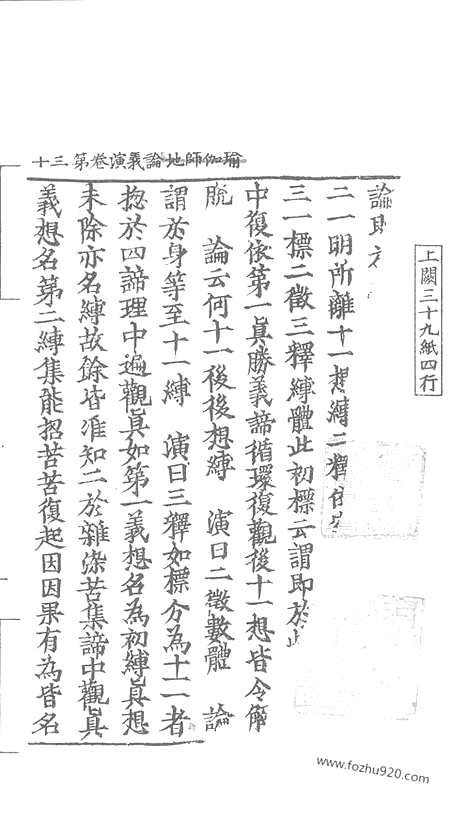 上闕三十九紙四行
論
二一明所離十一想縛二釋
三一標二徵三釋縛體此初標云謂即於此
中復依第一眞勝義諦循環復觀後十一想皆令解
脫　論云何十一後後想縛　演曰二徵數體　論
謂於身等至十一縛　演曰三釋如標分為十二者
揔於四諦理中遍觀眞如第一義想名為初縛眞想
未除亦名縛故餘皆准知二於雜染苦集諦中觀眞
義想名第二縛集能招苦苦復起因因果有為皆名
瑜伽師地論義演卷第三十
www.fozhu920.com